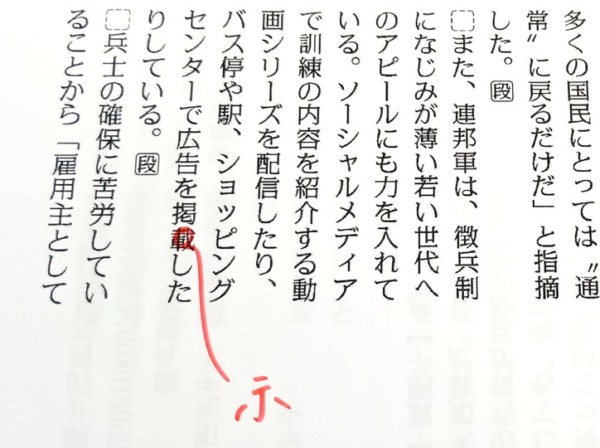 多くの国民にとっては〝通
常〟に戻るだけだ」と指摘
した。段
また、連邦軍は、徴兵制
になじみが薄い若い世代へ
のアピールにも力を入れて
いる。ソーシャルメディア
で訓練の内容を紹介する動
画シリーズを配信したり、
バス停や駅、ショッピング
センターで広告を掲載した
りしている。段
兵士の確保に苦労してい
ることから「雇用主として
示